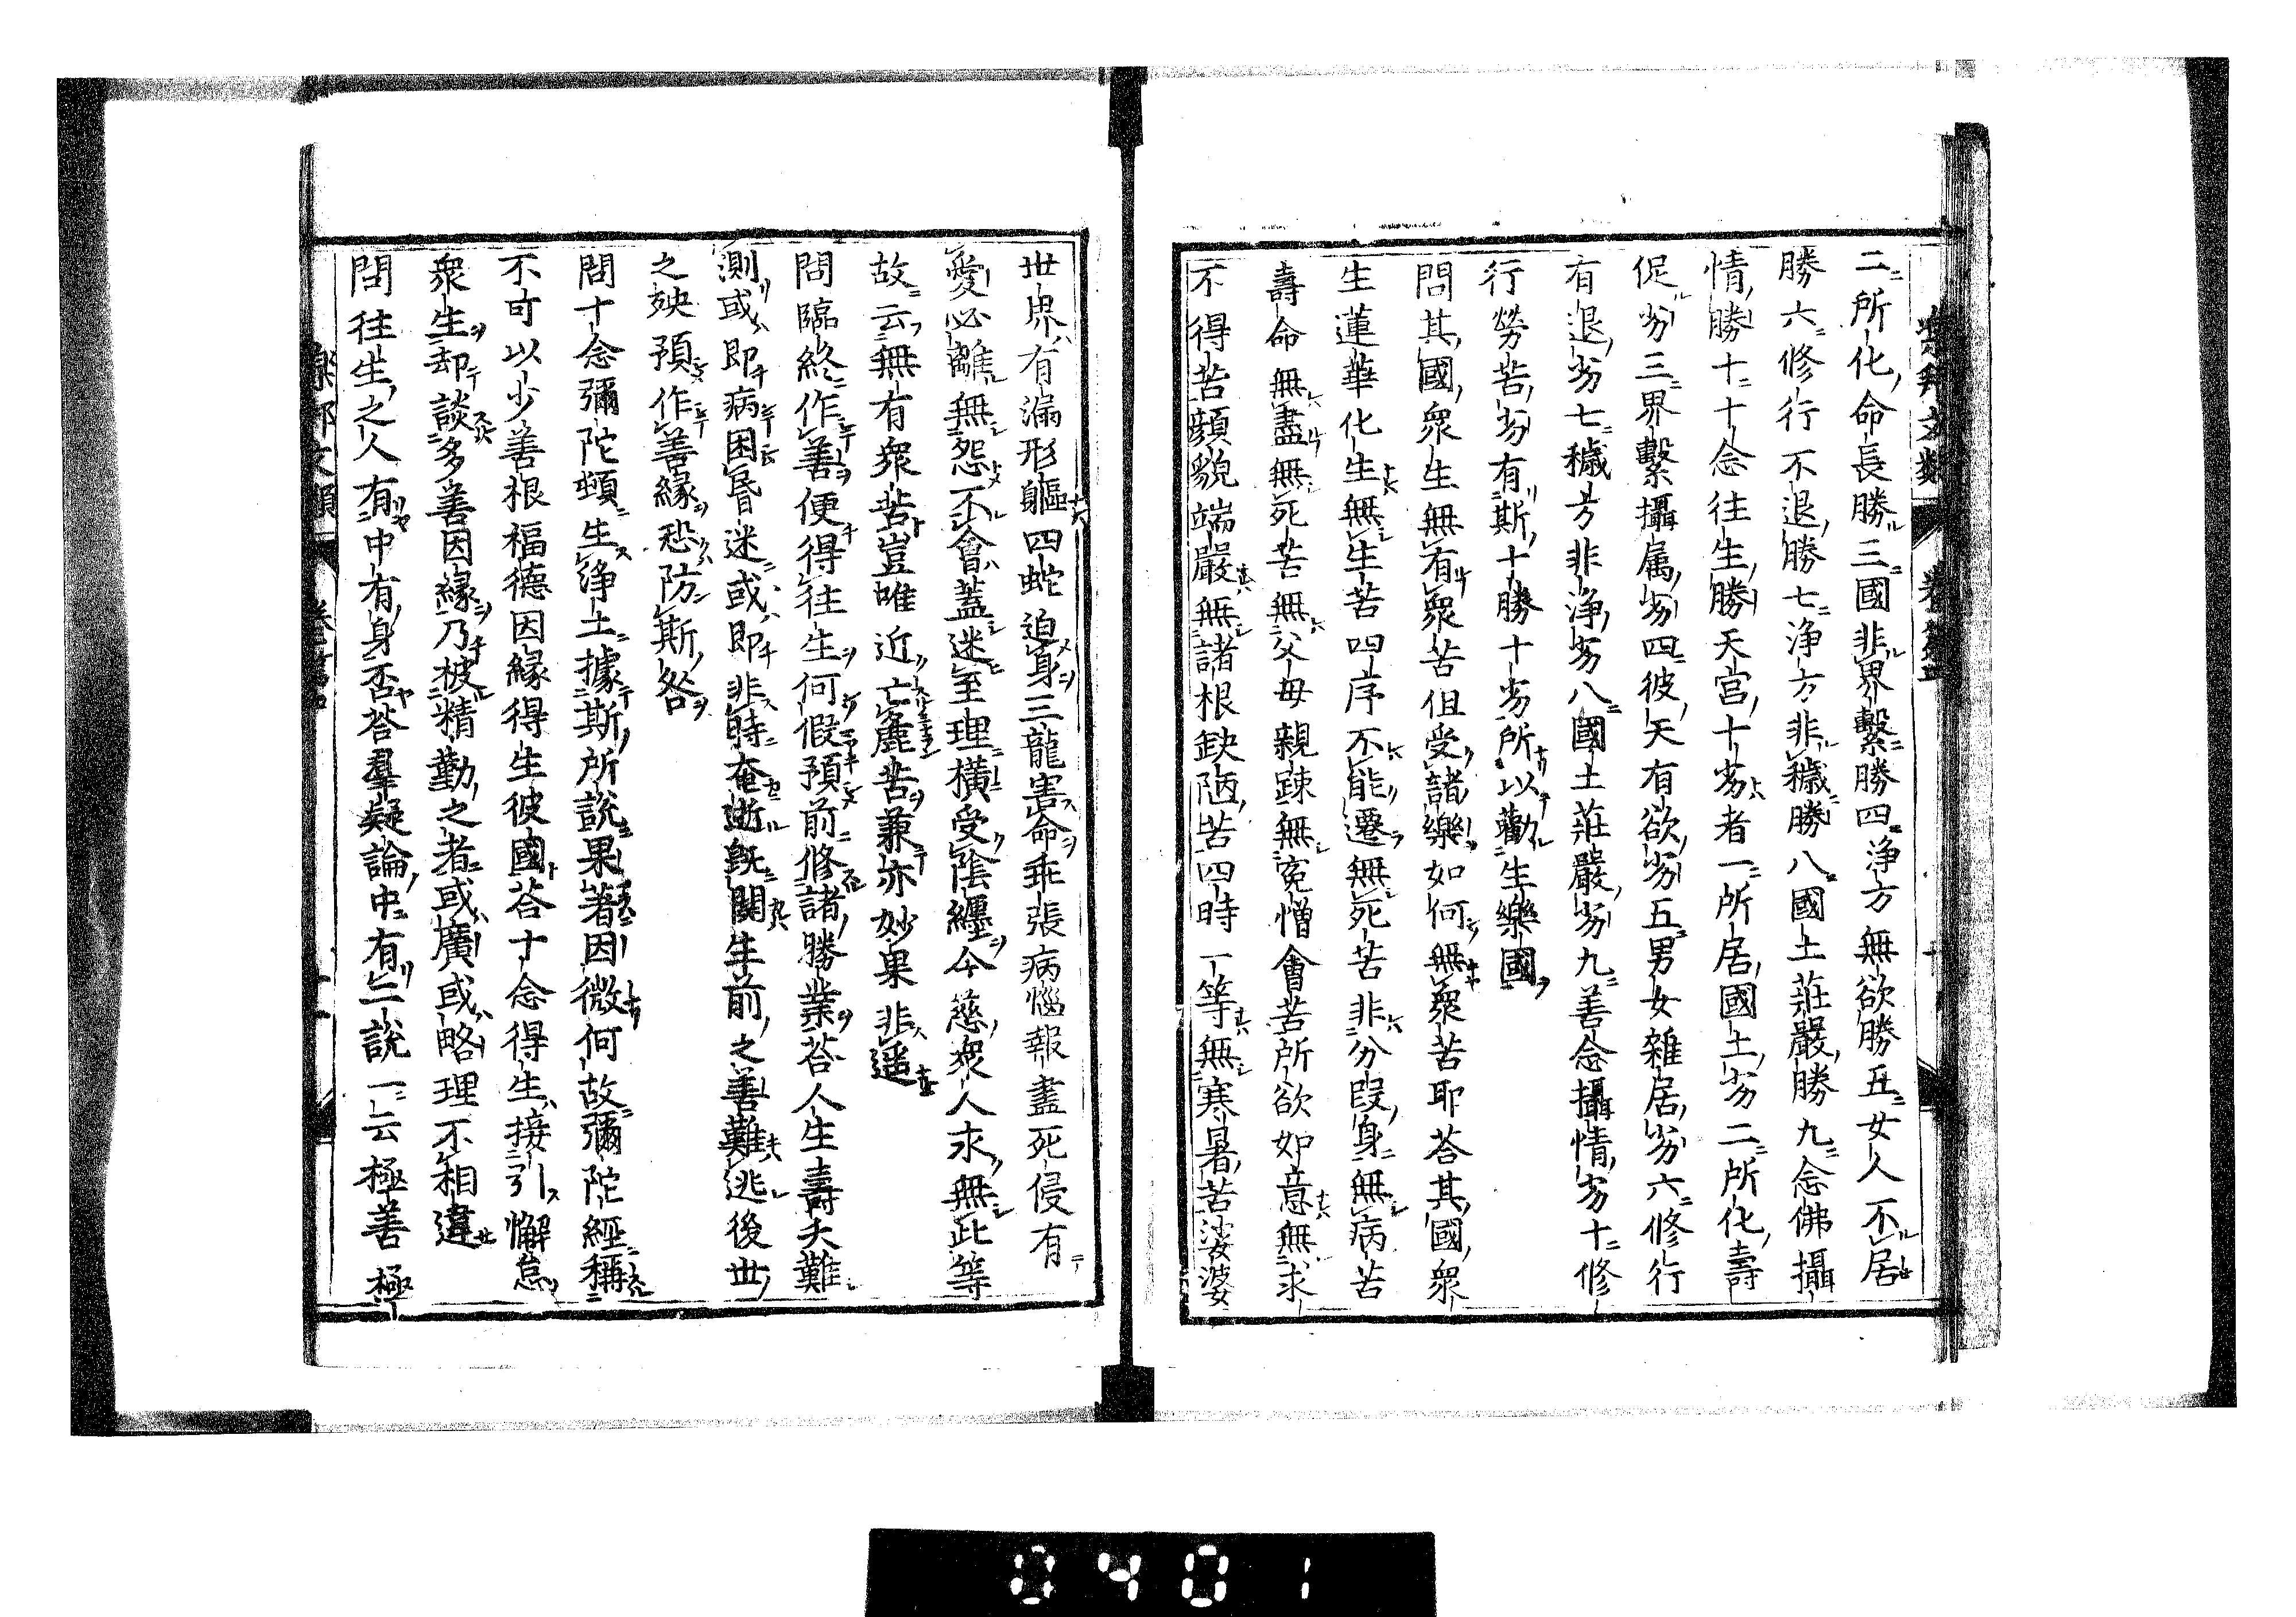 二所化命長勝三國非界繫勝四淨方無欲勝五女人不居
勝六修行不退勝七淨方非穢勝八國土莊嚴勝九念佛攝
情勝十十念往生勝天宮十劣者一所居國土劣二所化壽
促劣三界繫攝属劣四彼天有欲劣五男女雜居劣六修行
有退劣七穢方非淨劣八國土莊嚴劣九善念攝情劣十修
行勞苦劣有斯十勝十劣所以勸生樂國
問其國衆生無有衆苦但受諸樂如何無衆苦耶荅其國衆
生蓮華化生無生苦四序不能遷無死苦非分段身無病苦
壽命無盡無死苦無父母親踈無寃憎會苦所欲如意無求
不得苦顔貌端嚴無諸根缺陋苦四時一等無寒暑苦娑婆
世界有漏形軀四蛇迫身三龍害命乖張病惱報盡死侵有
愛必離無怨不會蓋迷至理橫受陰纏今慈衆人求無此等
故云無有衆苦豈唯近亡麁苦兼亦妙果非遥
問臨終作善便得往生何假預前修諸勝業荅人生壽夭難
測或即病困昏迷或即非時奄逝既闕生前之善難逃後世
之殃預作善緣恐防斯咎
問十念彌陀頓生淨土據斯所說果著因微何故彌陀經稱
不可以少善根福德因緣得生彼國荅十念得生接引懈怠
衆生却談多善因緣乃被精勤之者或廣或略理不相違
問往生之人有中有身否荅羣疑論中有二說一云極善極
樂邦文類